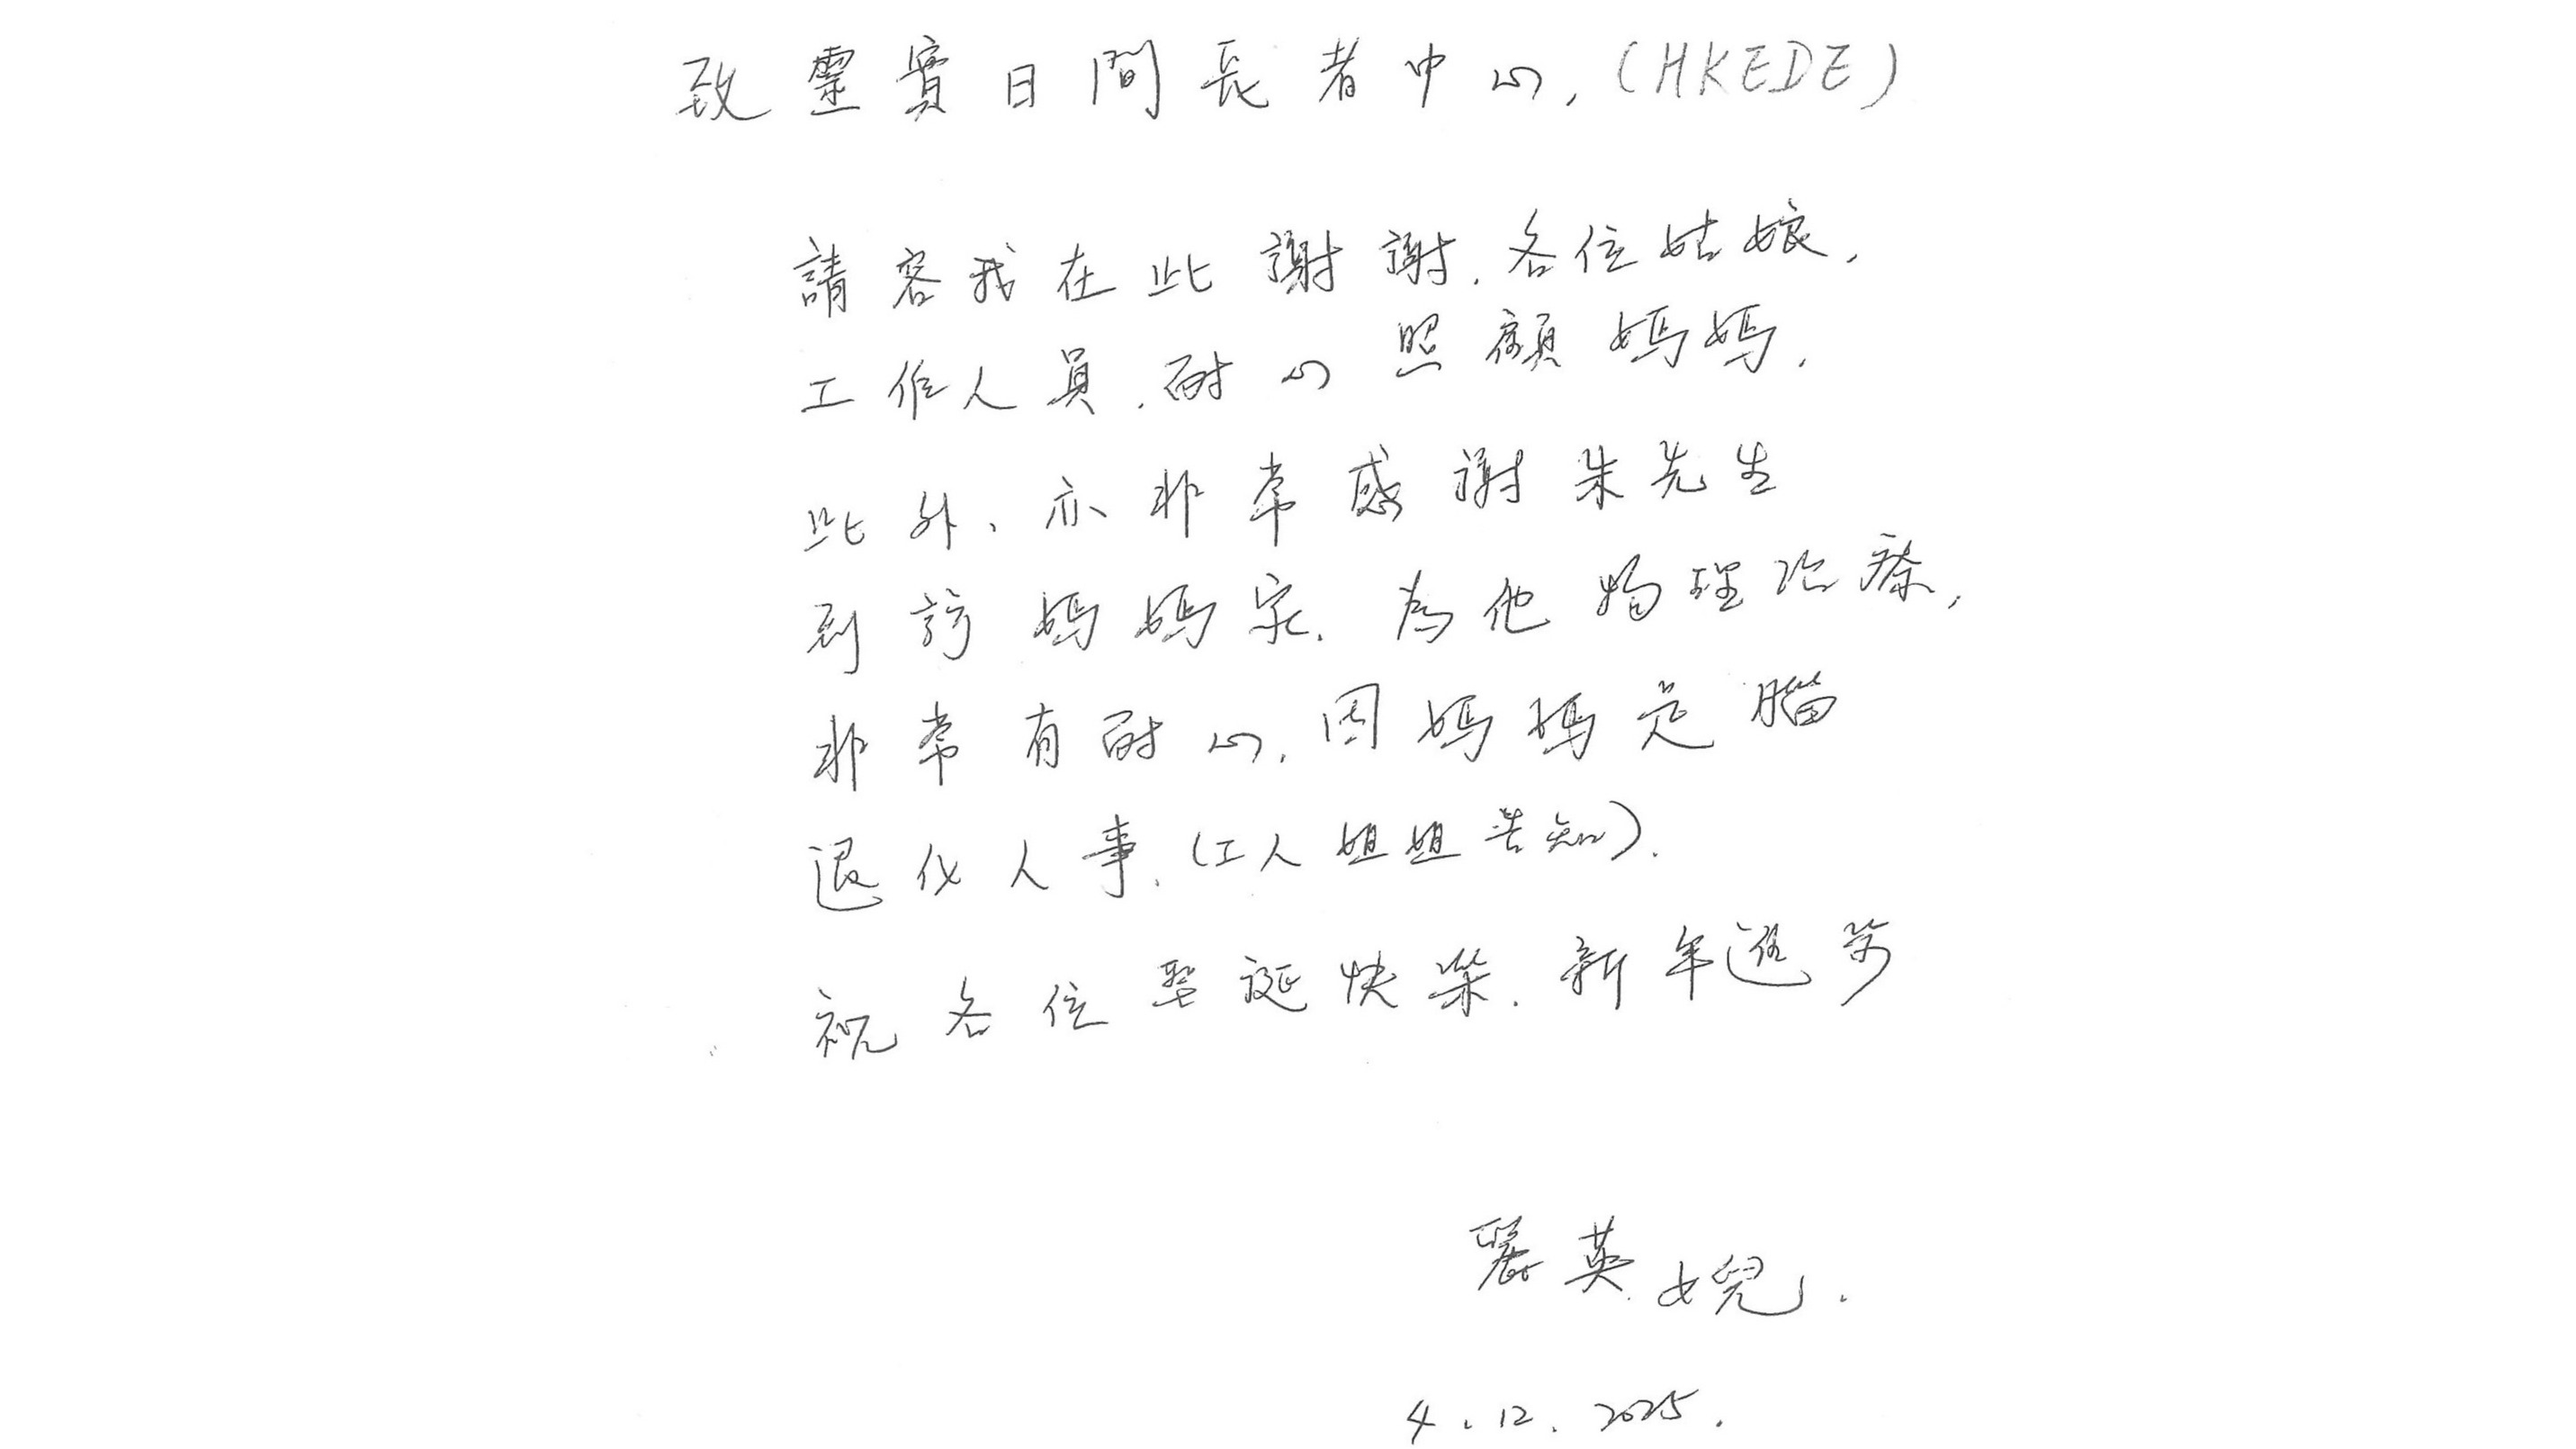 致靈實日間長者中心,(HKEDE)
請容我在此謝謝.各位姑娘,
工作人員.耐心照顧媽媽,
此外、亦非常感謝朱先生
到訪媽媽家.為他物理治療,
非常有耐心.因媽媽是腦
退化人事.(工人姐姐告知).
祝各位聖誕快樂.新年進步
麗英女兒.
4.12.2025.